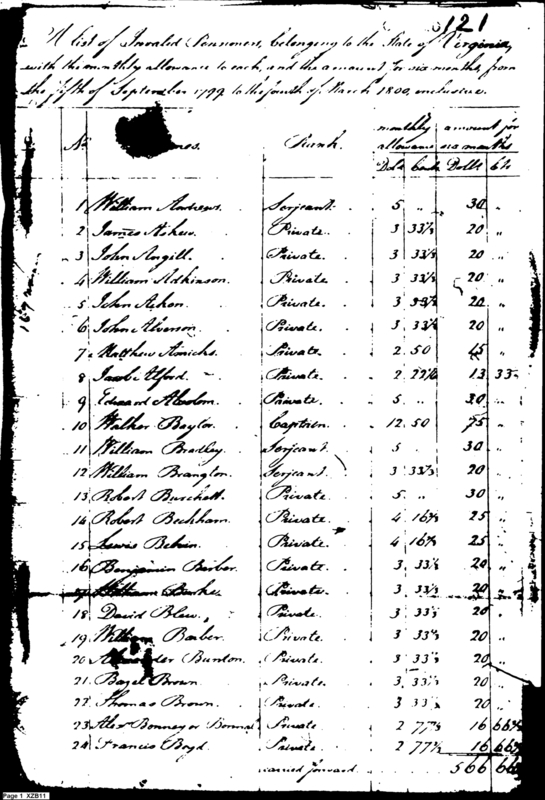 121
A list of Invalid Pensioners, belonging to the State of Virginia,
with the monthly allowance to each, and the amount for six months, from
the fifth of September 1799 to the fourth of March 1800, inclusive.
monthly amount for
No. Rank. allowance six months
Dols Cents Dolls Cts
1 William Andrews. Serjeant. 5 „ 30 „
2 James Askew. Private. 3 33⅓ 20 „
3 John Angill. Private. 3 33⅓ 20 „
4 William Adkinson. Private. 3 33⅓ 20 „
5 John Acken. Private. 3 33⅓ 20 „
6 John Alverson. Private. 3 33⅓ 20 „
7 Matthew Amichs. Private. 2 50 15 „
8 Jacob Alford. Private. 2 22⅙ 13 33
9 Edward Private. 5 „ 30 „
10 Walker Baylor. Captain. 12 50 75 „
11 William Bradley. Serjeant. 5 30 „
12 William Brangton. Serjeant. 3 33⅓ 20 „
13 Robert Burchett. Private. 5 „ 30 „
14 Robert Beckham. Private. 4 16⅔ 25 „
15 Lewis Belvin. Private. 4 16⅔ 25 „
16 Benjamin Barber. Private. 3 33⅓ 20 „
17 William Burke. Private. 3 33⅓ 20 „
18 David Blew. Private. 3 33⅓ 20 „
19 William Barber. Private. 3 33⅓ 20 „
20 Alexander Bunton. Private. 3 33⅓ 20 „
21 Bazel Brown. Private. 3 33⅓ 20 „
22 Thomas Brown. Private. 3 33⅓ 20 „
23 Alex Bonney or Bonnal Private 2 77⅔ 16 66⅔
24 Francis Boyd. Private. 2 77⅔ 16 66⅔
carried forward. 566 66
Page 1 XZB11